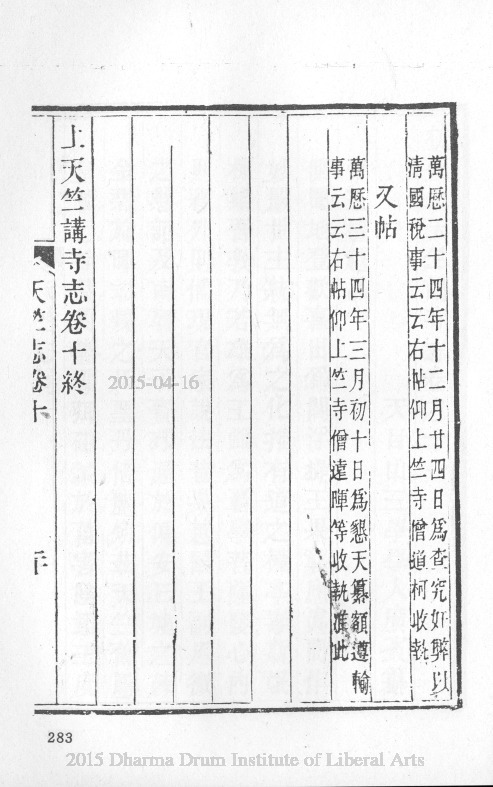 萬曆二十四年十二月廿四日爲查究奸弊以
清國稅事云云右帖仰上竺寺僧道柯收執
又帖
萬曆三十四年三月初十日爲懇天纂額遵輸
事云云右帖仰上竺寺僧遠暉等收執准此
上天竺講寺志卷十終
天竺志卷十
2015-04-16
283
2015 Dharma Drum Institute of Liberal Arts